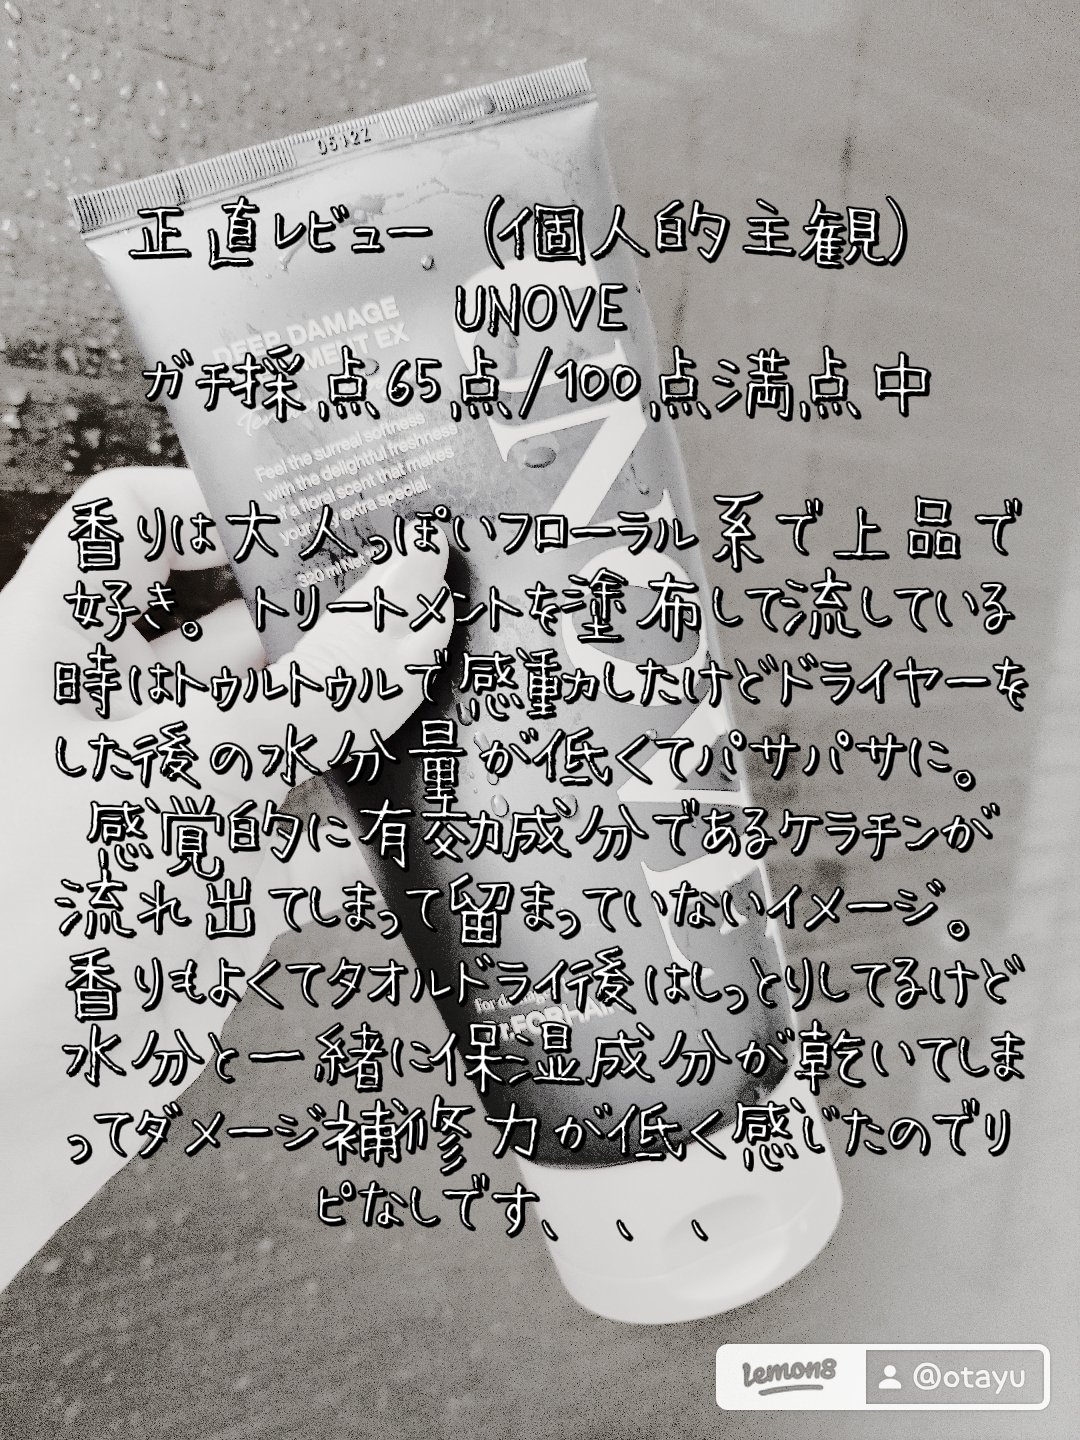 正直レビュー（個人的主観）
UNOVE
ガチ採点65点/100点満点中
香りは大人っぽいフローラル系で上品で
好き。トリートメントを塗布して流している
時はトゥルトゥルで感動したけどドライヤーを
した後の水分量が低くてパサパサに。
感覚的に有効成分であるケラチンが
流れ出てしまって留まっていないイメージ。
香りもよくてタオルドライ後はしっとりしてるけど
水分と一緒に保湿成分が乾いてしま
ってダメージ補修力が低く感じたのでリ
ピなしです、、、
05122
DEEP DAMAGE
TREATMENT EX
Feel the surreal softness
with the delightful freshness
of a floral scent that makes
your day extra special.
320 ml Net
UNOVE
For damag
DR.FORHAIR
lemon8
@otayu